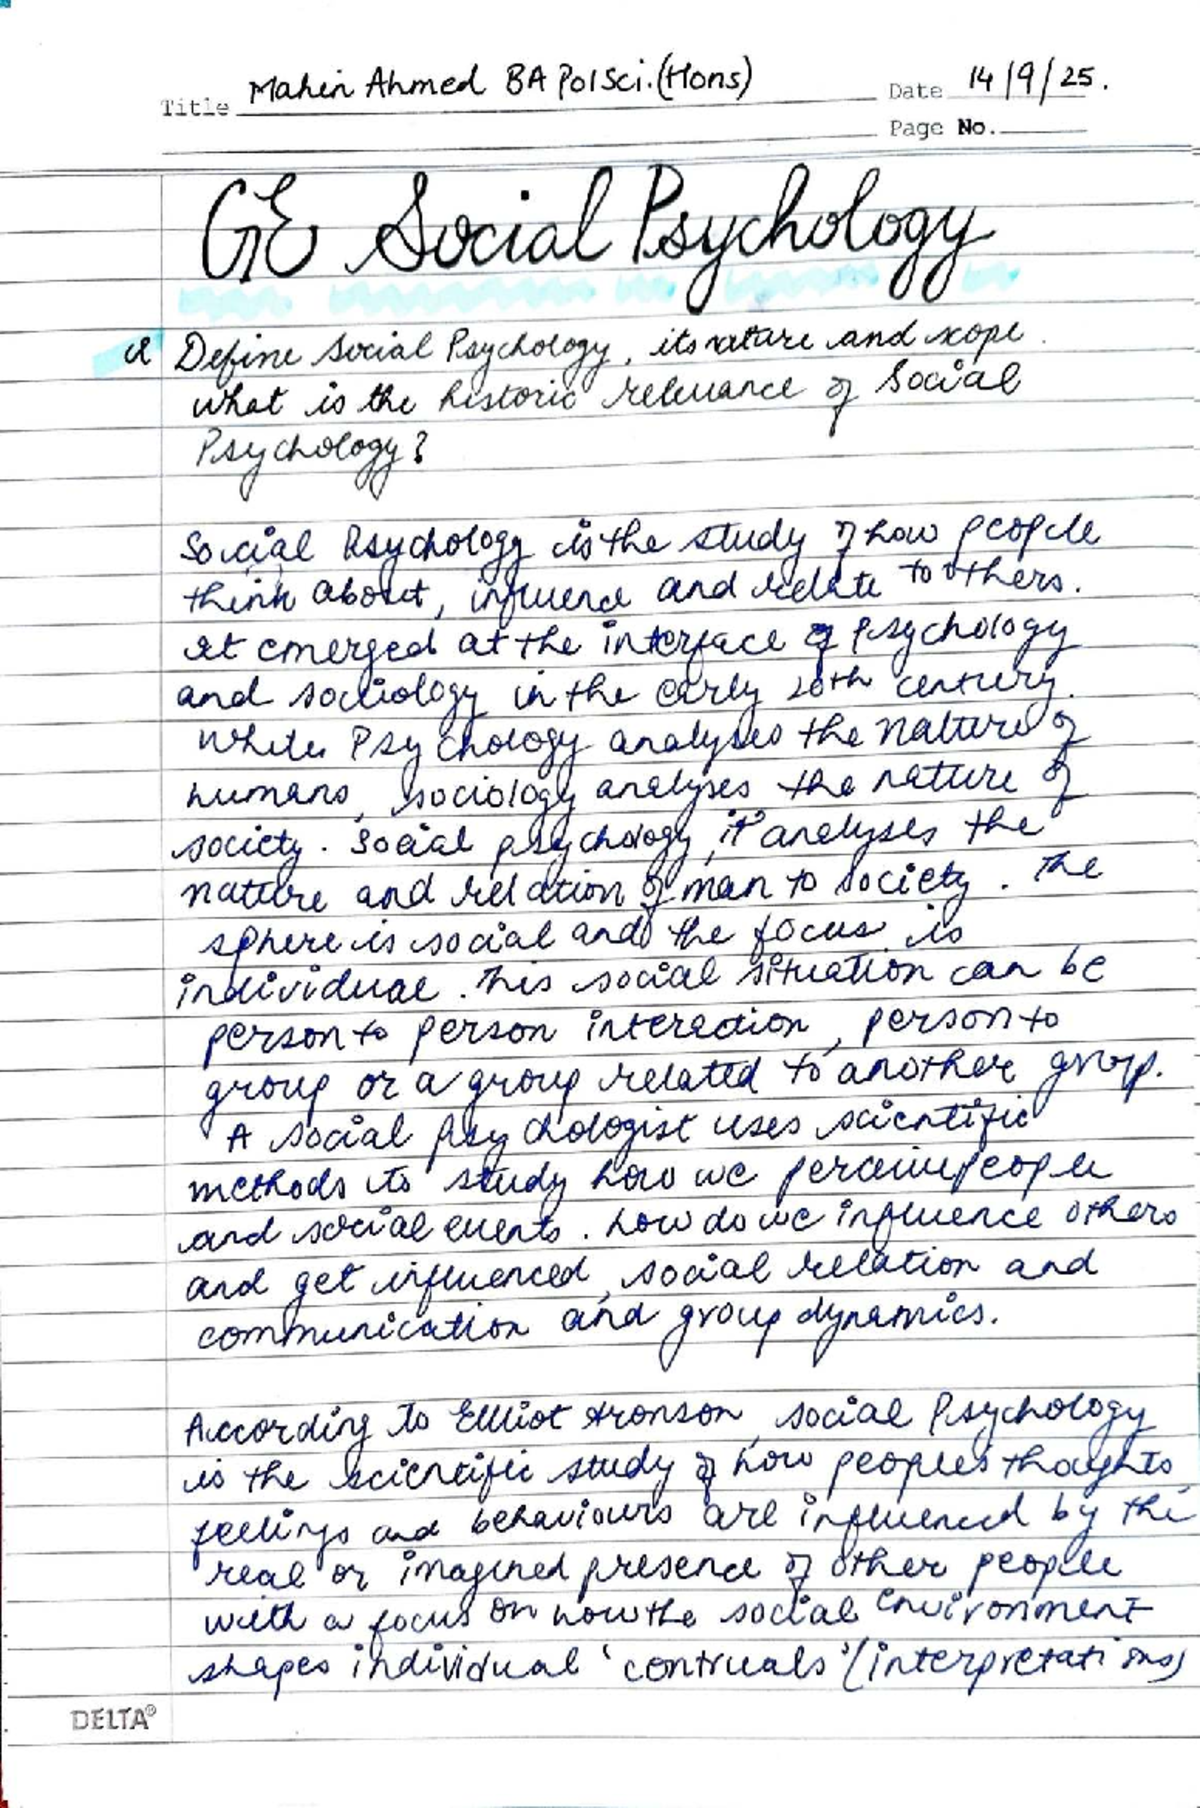 Mahin Ahmed BA PolSci.(Hons)
Title
Date 14/9/25.
Page No.
GE Social Psychology
Q Define Social Psychology, its nature and scope.
what is the historic relevance of Social
Psychology?
Social Psychology is the study of how people
think about, influence and relate to others.
It emerged at the interface of psychology
and sociology in the early 20th century.
While Psychology analyses the nature of
humans, sociology analyses the nature of
society. Social psychology, it analyses the
nature and relation of man to society. The
sphere is social and the focus is
individual. This social situation can be
person to person interaction, person to
group or a group related to another group.
A social psychologist uses scientific
methods to study how we perceive people
and social events. how do we influence others
and get influenced, social relation and
communication and group dynamics.
According to Elliot Aronson, social Psychology
is the scientific study of how people's thoughts,
feelings and behaviours are influenced by the
real or imagined presence of other people
with a focus on how the social environment
shapes individual 'contruals' (interpretations)
DELTA®